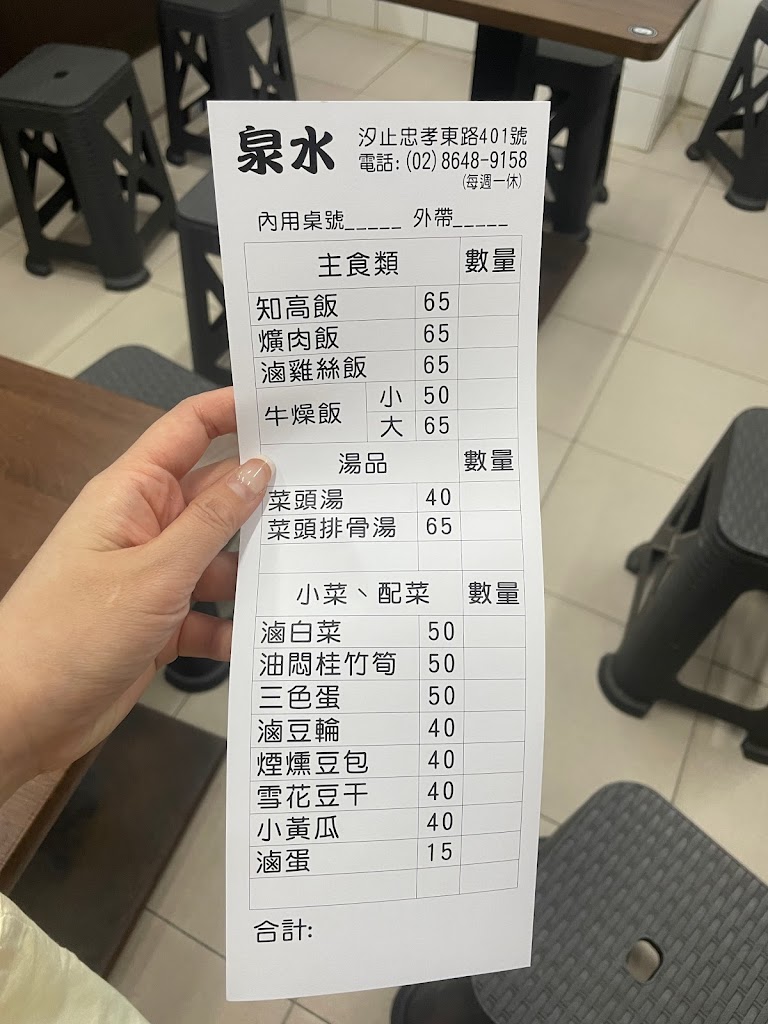 泉水
汐止忠孝東路401號
電話:(02)8648-9158
(每週一休)
內用桌號_____ 外帶_____
主食類 數量
知高飯 65
爌肉飯 65
滷雞絲飯 65
牛燥飯 小 50
大 65
湯品 數量
菜頭湯 40
菜頭排骨湯 65
小菜、配菜 數量
滷白菜 50
油悶桂竹筍 50
三色蛋 50
滷豆輪 40
煙燻豆包 40
雪花豆干 40
小黃瓜 40
滷蛋 15
合計: